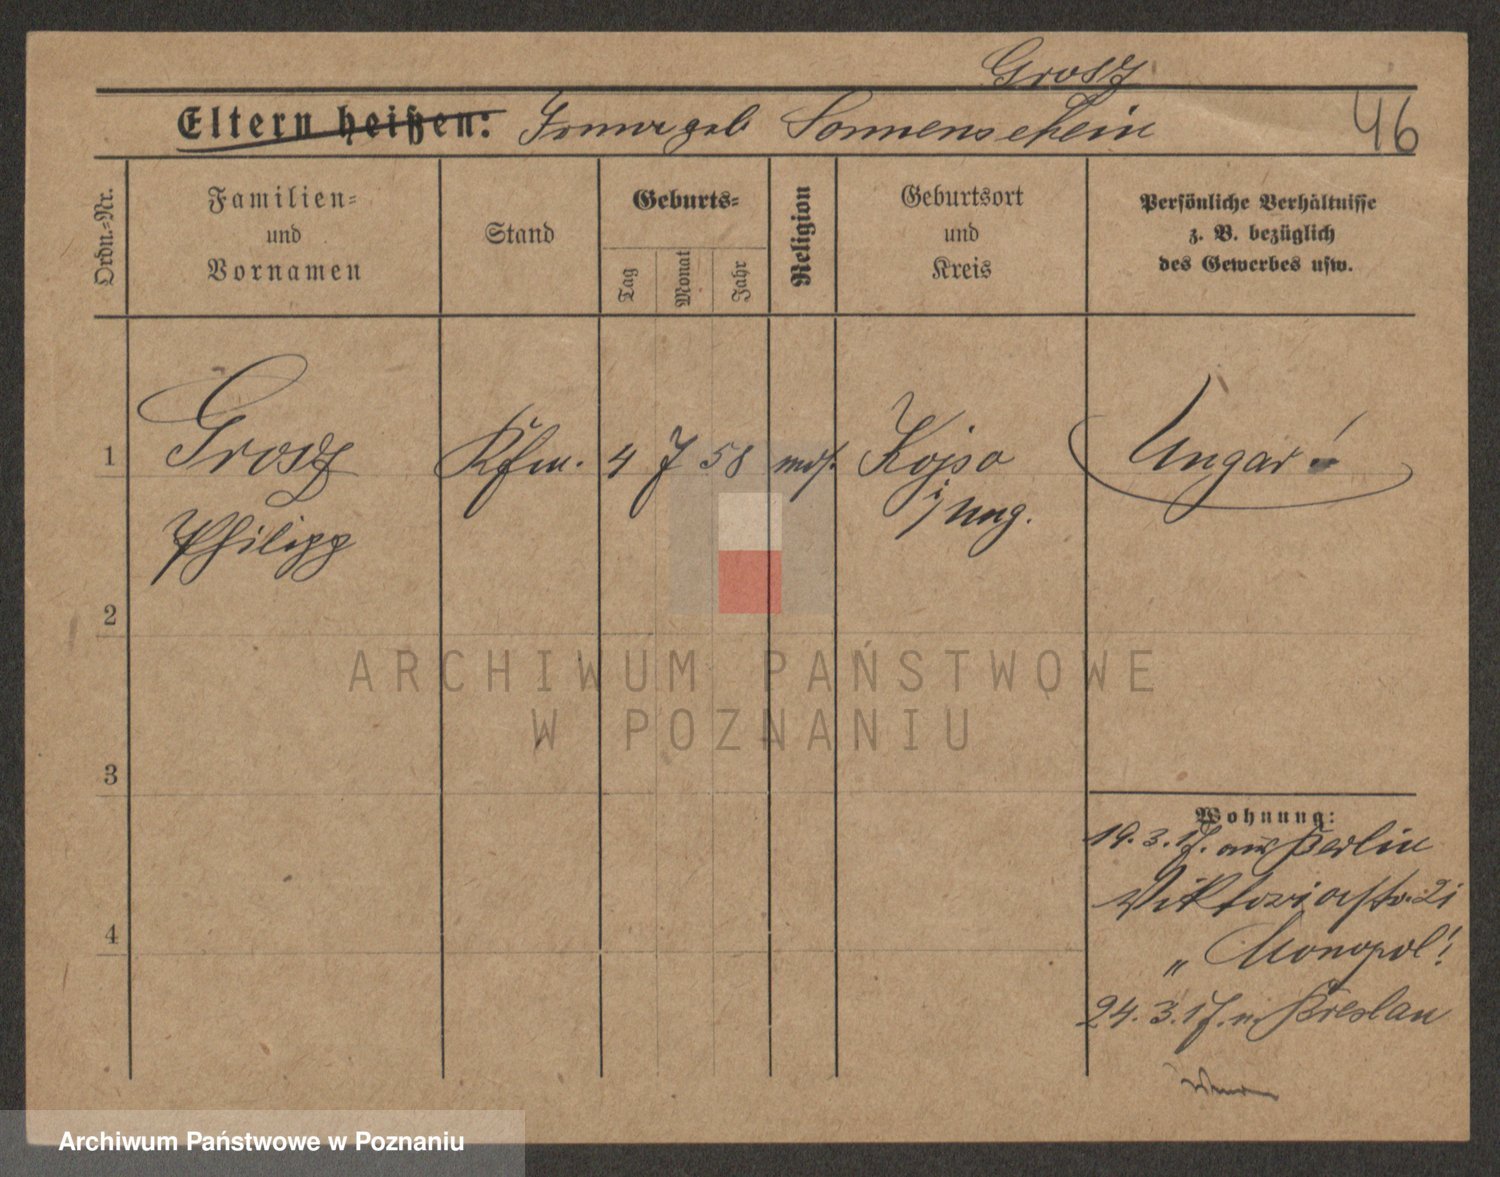 Grosz
Eltern heißen: geb Sonnenschein
46
Ordn.=Nr.
Familien=
und
Vornamen
Stand
Geburts=
Tag
Monat
Jahr
Religion
Geburtsort
und
Kreis
Persönliche Verhältnisse
z. B. bezüglich
des Gewerbes usw.
1
Grosz
Philipp
Kfm.
4 7 58
mos.
Kojso
i/Ung.
Ungar!
2
3
4
Wohnung:
19.3.17. aus Berlin
Viktoriastr. 21
„Monopol"
24.3.17. n. Breslau
ARCHIWUM PAŃSTWOWE
W POZNANIU
Archiwum Państwowe w Poznaniu